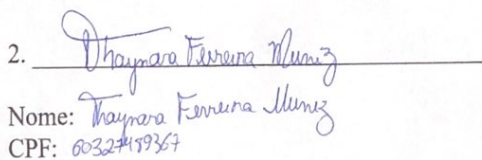 2. Thaynara Ferreira Muniz
Nome: Thaynara Ferreira Muniz
CPF: 60327489367